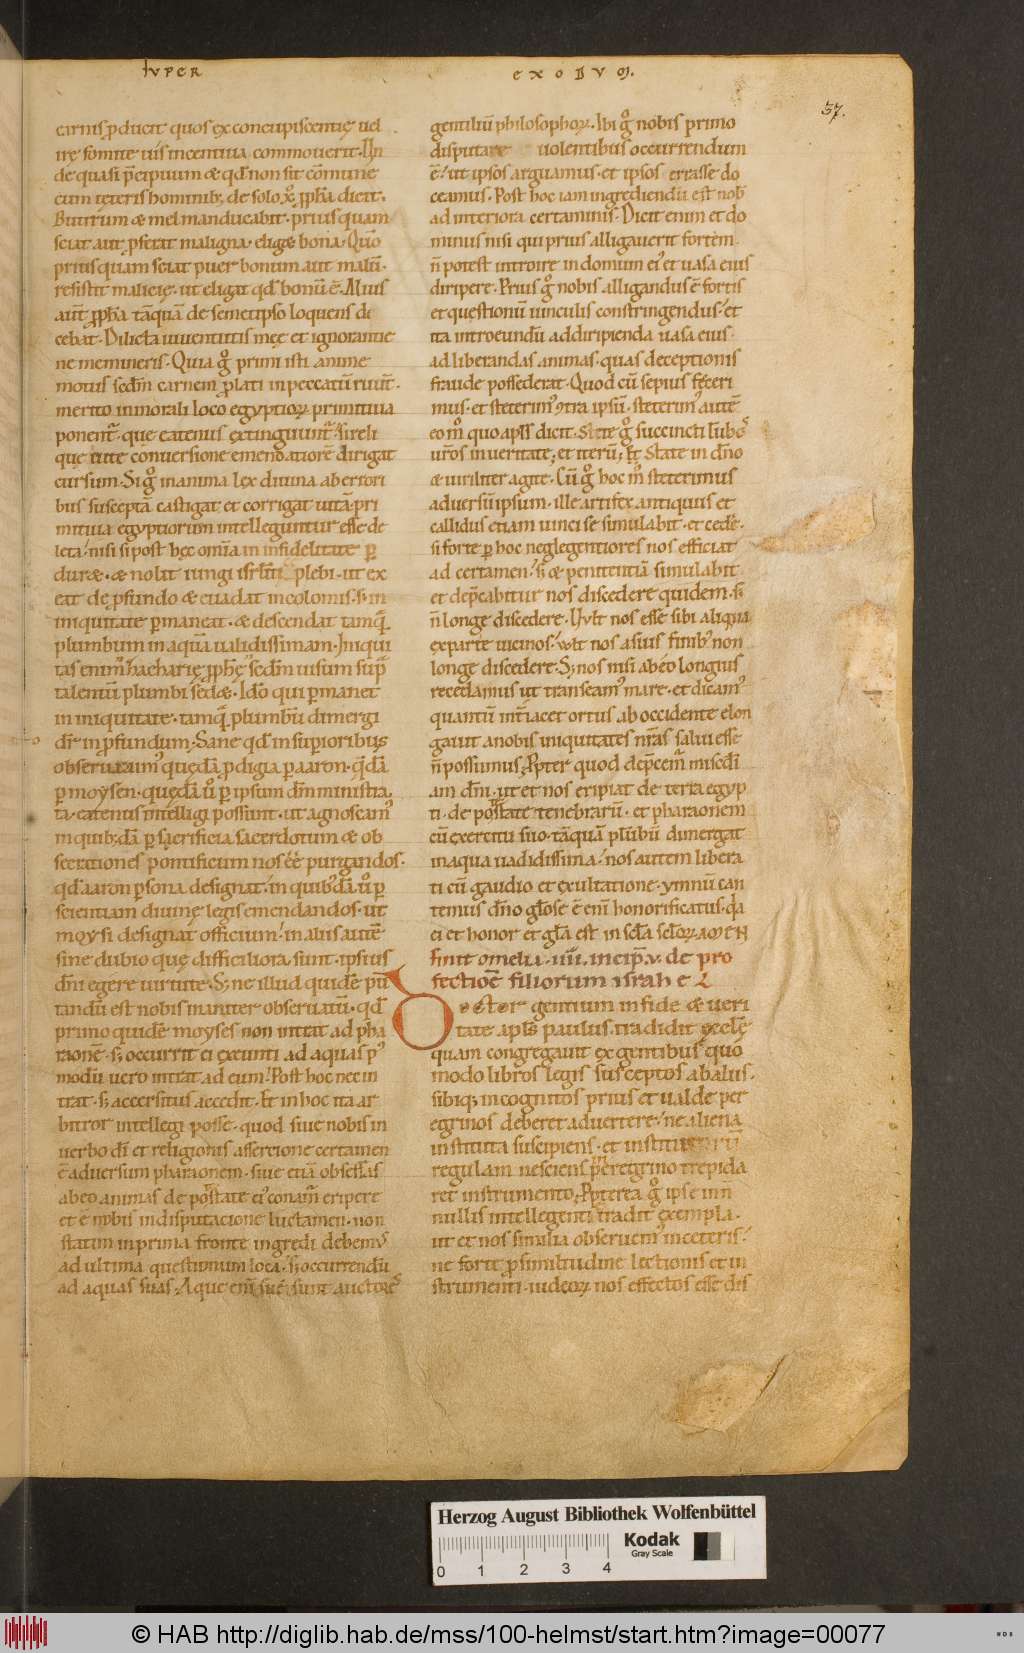 SUPER EXODUM.
37.
carnis ꝓducit quos ex concupiscentię uel
irę fomite uis incentiua commouerit. Un
de quasi p̄cipuum & qd̄ non sit cōmune
cum ceteris hominib; de solo xp̄o ꝓph̄a dicit.
Butirum & mel manducabit. prius quam
sciat aut ꝓferat maligna. eliget bona. Quō
prius quam sciat puer bonum aut malū.
resistit malicię. ut eligat qd̄ bonū ē. Alius
aūt ꝓph̄a tāquā de semetipso loquens di
cebat. Dilicta iuuentutis meę et ignorantie
ne memineris. Quia g̊ primi isti anime
motus sedm̄ carnem ꝓlati in peccatū ruunt.
merito in morali loco egyptioꝝ primitiua
ponent̄. que eatenus extinguunt̄. si reli
que uite conuersione emendatiorē dirigat
cursum. Si g̊ in anima lex diuina ab errori
bus susceptā castigat et corrigat uitā. pri
mitiua egyptiorum intelleguntur esse de
leta. nisi si post hęc om̄ia in infidelitate ꝑ
duret. & nolit iungi isrl̄iticę plebi. ut ex
eat de ꝓfundo & euadat incolomis. s; in
iniquitate ꝑmaneat. & descendat tamq̄
plumbum in aquā ualidissimam. Iniqui
tas enim zacharię ꝓph̄ę sedm̄ uisum sup̄
talentū plumbi sedet. Ideo qui ꝑmanet
in iniquitate. tamq̄ plumbū dimergi
dr̄ in ꝓfundum. Sane qd̄ in superioribus
obseruauimꝰ quędā ꝓdigia ꝑ aaron. q̄dā
ꝑ moysen. quędā ū ꝑ ipsum dn̄m ministra
ta. eatenus intelligi possunt. ut agnoscamꝰ
in quib;dā ꝑ sacrificia sacerdotum & ob
secrationes pontificum nos eē purgandos.
qd̄ aaron ꝑsona designat. in quibꝰdā ū ꝑ
scientiam diuinę legis emendandos. ut
moysi designat officium. in aliis autē
sine dubio quę difficiliora sunt. ipsius
dn̄i egere uirtute. S; ne illud quidē pu
tandū est nobis inaniter obseruatū. qd̄
primo quidē moyses non intrat ad pha
raonē. s; occurrit ei exeunti ad aquas. pꝰ
modū uero intrat ad eum. Post hoc nec in
trat. s; accersitus accedit. Et in hoc ita ar
bitror intellegi posse. quod siue nobis in
uerbo dī et religionis assercione certamen
ē aduersum pharaonem. siue etiā obsessas
ab eo animas de potestate eiꝰ conam̄ eripere
et ē nobis in disputacione luctamen. non
statim in prima fronte ingredi debemꝰ
ad ultima questionum loca. s; occurrendū
ad aquas suas. Aque enī suę sunt auctores
gentiliū philosophoꝝ. Ibi g̊ nobis primo
disputare uolentibus occurrendum
ē. ut ipsos arguamus. et ipsos errasse do
ceamus. Post hoc iam ingrediendū est nob̄
ad interiora certaminis. Dicit enim et do
minus nisi qui prius alligauerit fortem.
n̄ potest introire in domum eiꝰ et uasa eius
diripere. Prius g̊ nobis alligandus ē fortis
et questionū uinculis constringendus. et
ita introeundū ad diripienda uasa eius.
ad liberandas animas. quas deceptionis
fraude possederat. Quod cū sepius feceri
mus. et steterimꝰ ꝯtra ipsū. steterimꝰ autē
eo m̊ quo apl̄s dicit. State g̊ succincti lūbos
ur̄os in ueritate; et iterū; Et State in dn̄o
& uiriliter agite. Cū g̊ hoc m̊ steterimus
aduersū ipsum. ille artifex antiquus et
callidus etiam uinci se simulabit. et cedē.
si forte ꝑ hoc neglegentiores nos efficiat
ad certamen. s; & penitentiā simulabit.
et dep̄cabitur nos discedere quidem. s;
n̄ longe discedere. Uult nos esse sibi aliqua
ex parte uicinos. uult nos a suis finibꝰ non
longe discedere. S; nos nisi ab eo longius
recedamus ut transeamꝰ mare. et dicamꝰ
quantū int̄iacet ortus ab occidente elon
gauit a nobis iniquitates nr̄as salui esse
n̄ possumus. Ꝓpter quod dep̄cem̄ misedī
am dn̄i. ut et nos eripiat de terra egyp
ti. de potestate tenebrarū. et pharaonem
cū exercitu suo. tāquā plūbū dimergat
in aqua uadidissima. nos autem libera
ti cū gaudio et exultatione. ymnū can
temus dn̄o. gl̄ose ē enī honorificatus. qa
ei et honor et gl̄a est in scl̄a scl̄oꝝ. AMEN
finit omelia. iiii. incip̄. v. de pro
fectione filiorum israhel
Doctor gentium in fide & veri
tate apl̄s paulus. tradidit ęcclę
quam congregauit ex gentibus quo
modo libros legis susceptos ab aliis.
sibiq; incognitos prius et ualde per
egrinos deberet aduertere. ne aliena
instituta suscipiens. et institutorū
regulam nesciens p̄eregrino trepida
ret instrumento. Ꝓpterea g̊ ipse in n̄
nullis intellegenti tradit exempla.
ut et nos similia obseruemꝰ in ceteris.
ne forte ꝓ similitudine lectionis et in
strumenti. iudeoꝝ nos effectos esse dis
Herzog August Bibliothek Wolfenbüttel
0 1 2 3 4
Kodak
Gray Scale
© HAB http://diglib.hab.de/mss/100-helmst/start.htm?image=00077